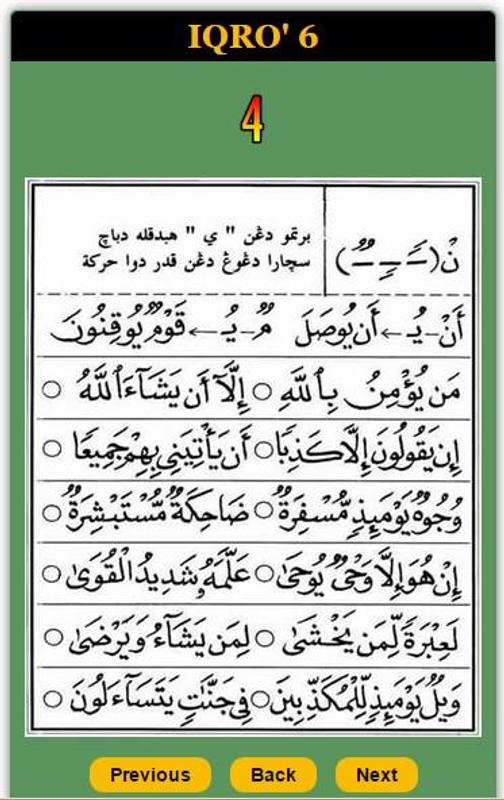 IQRO' 6
4
نْ (ــًـ ــٍـ ــٌـ) برتمو دڠن " ي " هبدقله دباچ
سچارا دڠوڠ دڠن قدر دوا حركة
أَنْ-يُ ← أَن يُوصَلَ مٌ-يُ ← قَوْمٌ يُوقِنُونَ
مَن يُؤْمِنُ بِٱللَّهِ ○ إِلَّآ أَن يَشَآءَ ٱللَّهُ ○
إِن يَقُولُونَ إِلَّا كَذِبًا ○ أَن يَأْتِيَنِي بِهِمْ جَمِيعًا ○
وُجُوهٌ يَوْمَئِذٍ مُّسْفِرَةٌ ○ ضَاحِكَةٌ مُّسْتَبْشِرَةٌ ○
إِنْ هُوَ إِلَّا وَحْيٌ يُوحَىٰ ○ عَلَّمَهُ شَدِيدُ الْقُوَىٰ ○
لَعِبْرَةً لِّمَن يَخْشَىٰ ○ لِمَن يَشَآءُ وَيَرْضَىٰ ○
وَيْلٌ يَوْمَئِذٍ لِّلْمُكَذِّبِينَ ○ فِي جَنَّاتٍ يَتَسَآءَلُونَ ○
Previous Back Next